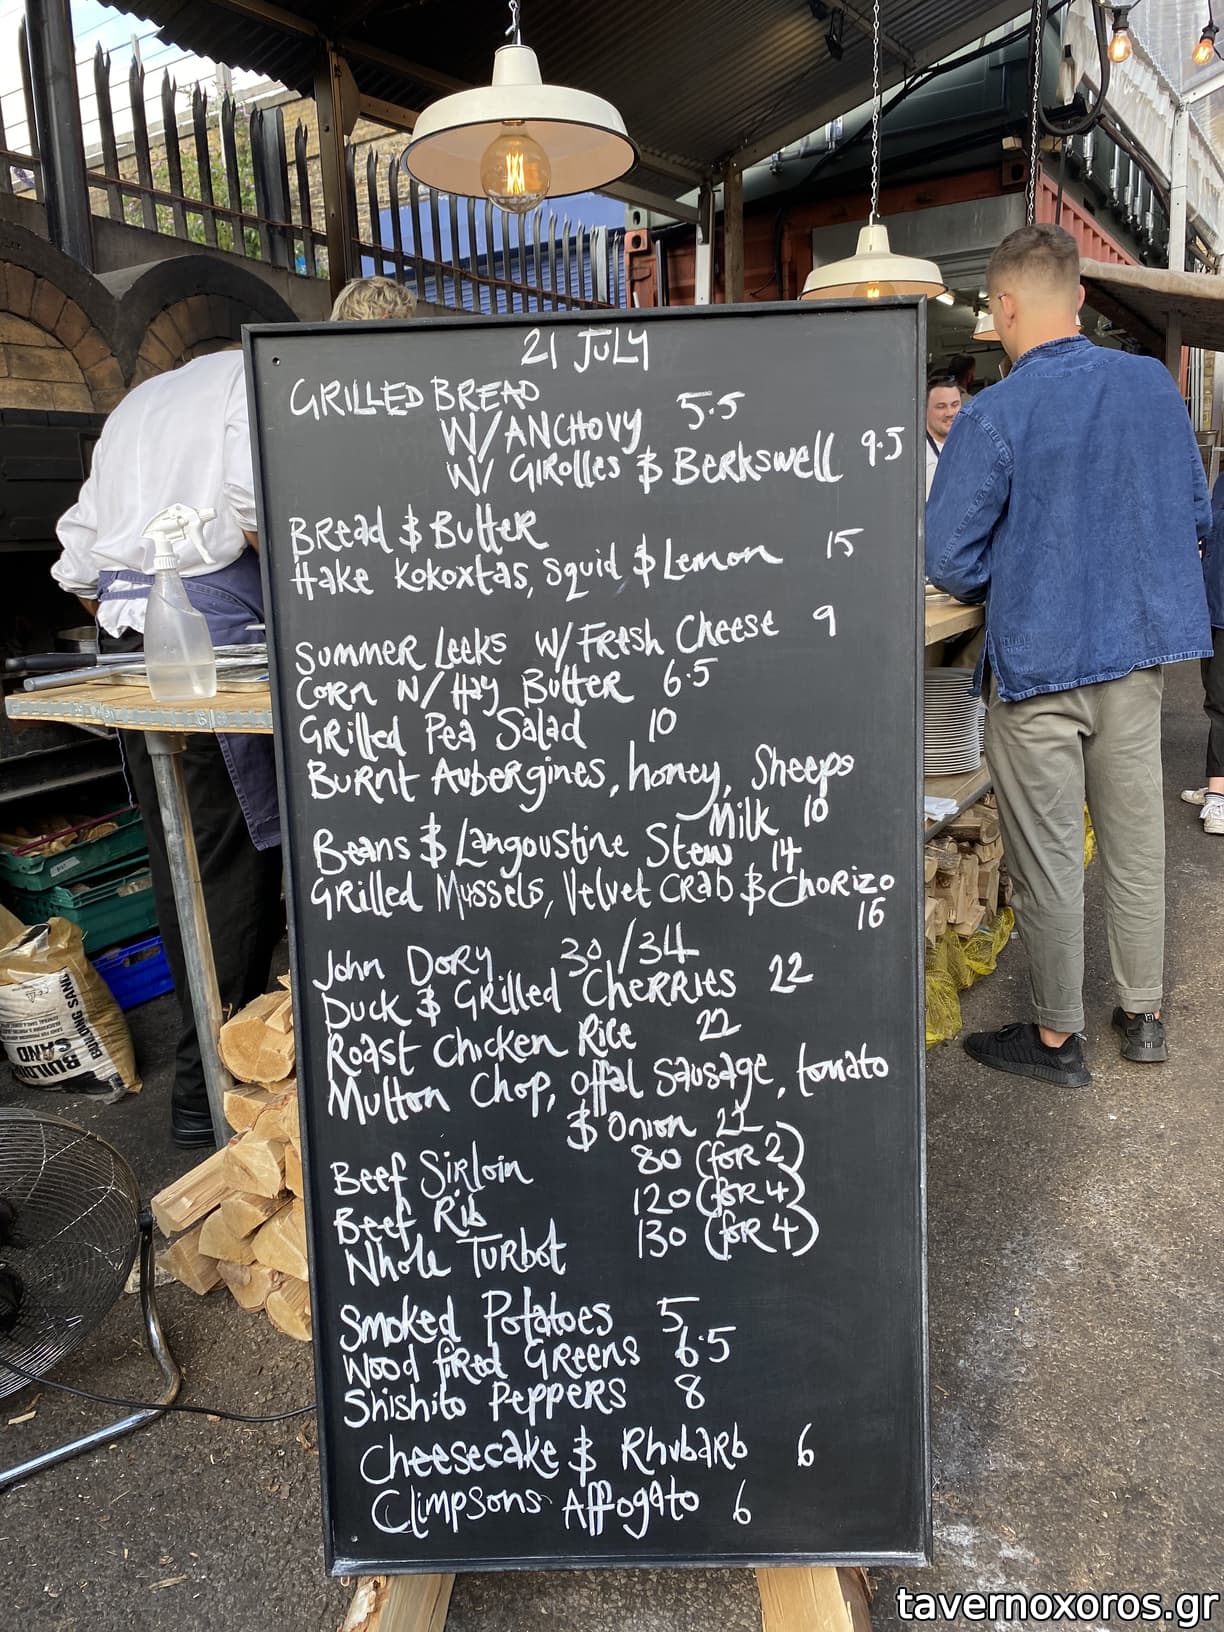 21 JULY
GRILLED BREAD
W/ANCHOVY 5.5
W/ GIROLLES & BERKSWELL 9.5
BREAD & BUTTER
HAKE KOKOXTAS, SQUID & LEMON 15
SUMMER LEEKS W/ FRESH CHEESE 9
CORN W/ HAY BUTTER 6.5
GRILLED PEA SALAD 10
BURNT AUBERGINES, honey, Sheeps
Milk 10
Beans & Langoustine Stew 14
Grilled Mussels, Velvet Crab & Chorizo
16
John Dory 30/34
Duck & Grilled Cherries 22
Roast Chicken Rice 22
Mutton Chop, offal Sausage, tomato
& Onion 22
Beef Sirloin 80 (for 2)
Beef Rib 120 (for 4)
Whole Turbot 130 (for 4)
Smoked Potatoes 5
Wood fired Greens 6.5
Shishito Peppers 8
Cheesecake & Rhubarb 6
Climpsons Affogato 6
BUILDING SAND
BUILDING
SAND
tavernoxoros.gr